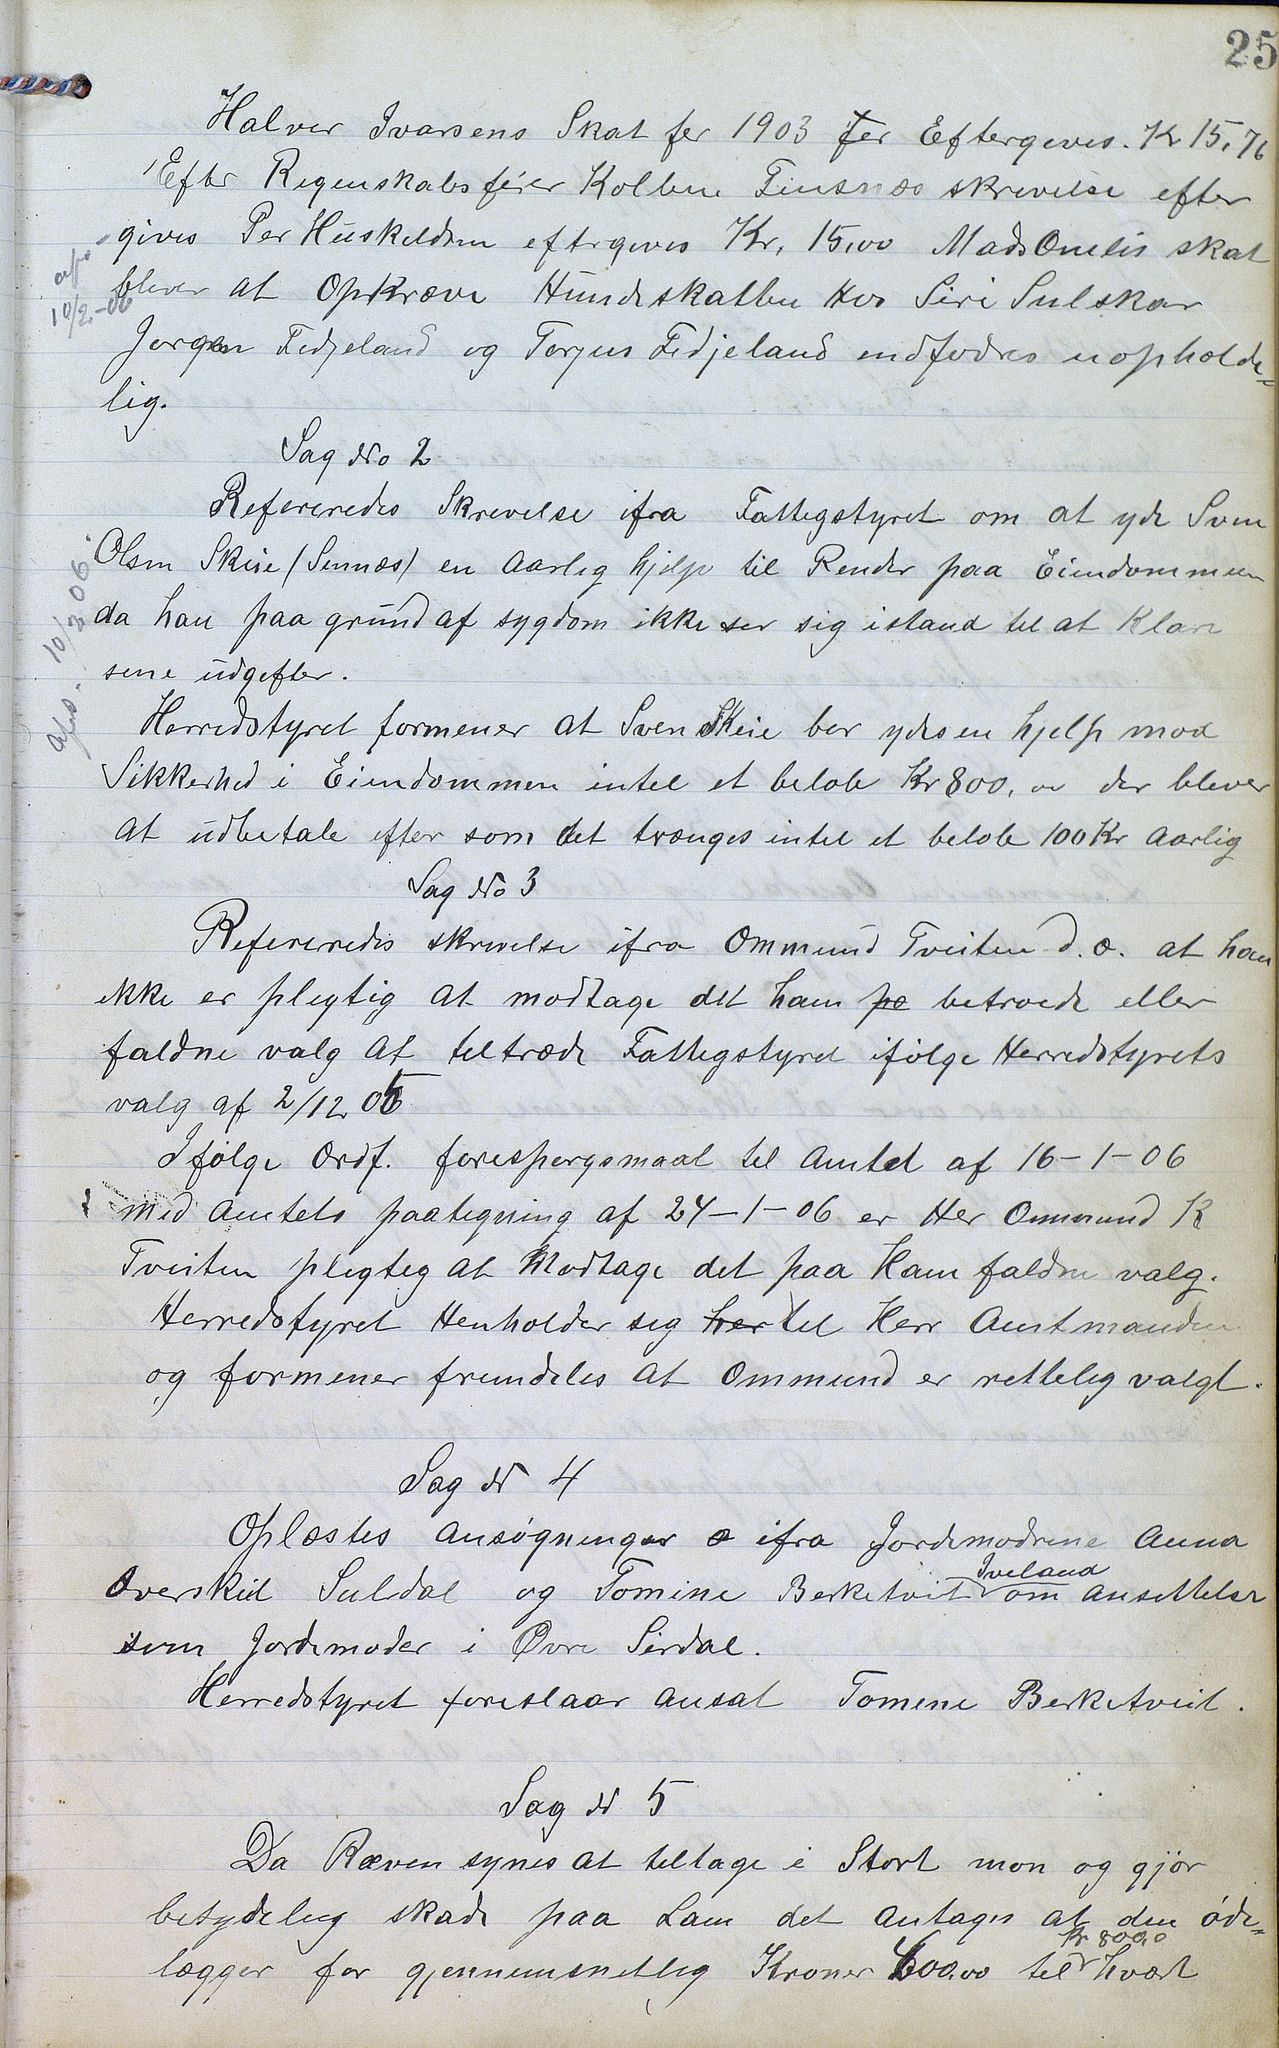 25
Halver Ivarsens Skat for 1903 for Eftergives. Kr 15,76
Efter Regenskabsfører Kolben Tinsnæs skrivelse efter
gives Per Huskeldsen eftergives Kr. 15,00 Mads Omlis skat
bliver at Opkræve Hundeskatten Hos Siri Sulskar
Jorgen Fidjeland og Torjus Fidjeland indfodres uopholde-
lig.
afs. 10/2-06
Sag No 2
Refereredes Skrivelse ifra Fattigstyret om at yde Sven
Olsen Skeie (Sinnæs) en Aarlig hjelp til Render paa Eiendommen
da han paa grund af sygdom ikke ser sig istand til at Klare
sine udgifter.
afs. 10/2 06.
Herredstyret formener at Sven Skeie bør ydes en hjelp mod
Sikkerhed i Eiendommen intil et beløb Kr 800,00 der bliver
at udbetale efter som det trænges intil et beløb 100 Kr Aarlig
Sag No 3
Refereredes skrivelse ifra Ommund Tveiten d.æ. at han
ikke er plegtig at modtage det ham pa betroede eller
faldne valg at tiltræde Fattigstyret ifølge Herredstyrets
valg af 2/12 05
Ifølge Ordf. forespørgsmaal til Amtet af 16-1-06
med Amtets paategning af 24-1-06 er Her Ommund K
Tveiten plegtig at Modtage det paa Ham faldne valg.
Herredstyret Henholder sig her til Herr Amtmanden
og formener fremdeles at Ommund er rettelig valgt.
Sag N 4
Oplæstes Ansøgninger o ifra Jordemodrene Anna
Overskeid Suldal og Tomine Berketveit Iveland om ansettelse
som Jordemoder i Øvre Sirdal.
Herredstyret foreslaar Ansat Tomine Berketveit.
Sag N 5
Da Ræven synes at tiltage i Stort mon og gjør
betydelig skade paa Lam det Antages at den øde-
lægger for gjennemsnetlig Kroner 600,00 til Kr 800,0 hvært